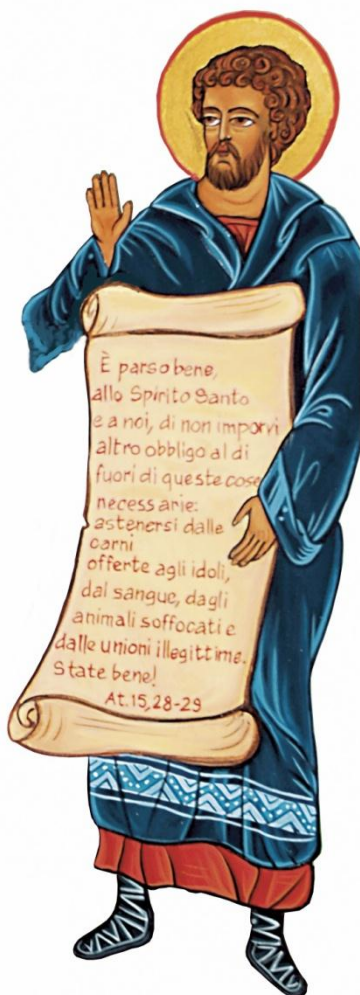 È parso bene,
allo Spirito Santo
e a noi, di non imporvi
altro obbligo al di
fuori di queste cose
necessarie:
astenersi dalle
carni
offerte agli idoli,
dal sangue, dagli
animali soffocati e
dalle unioni illegittime.
State bene!
At. 15,28-29